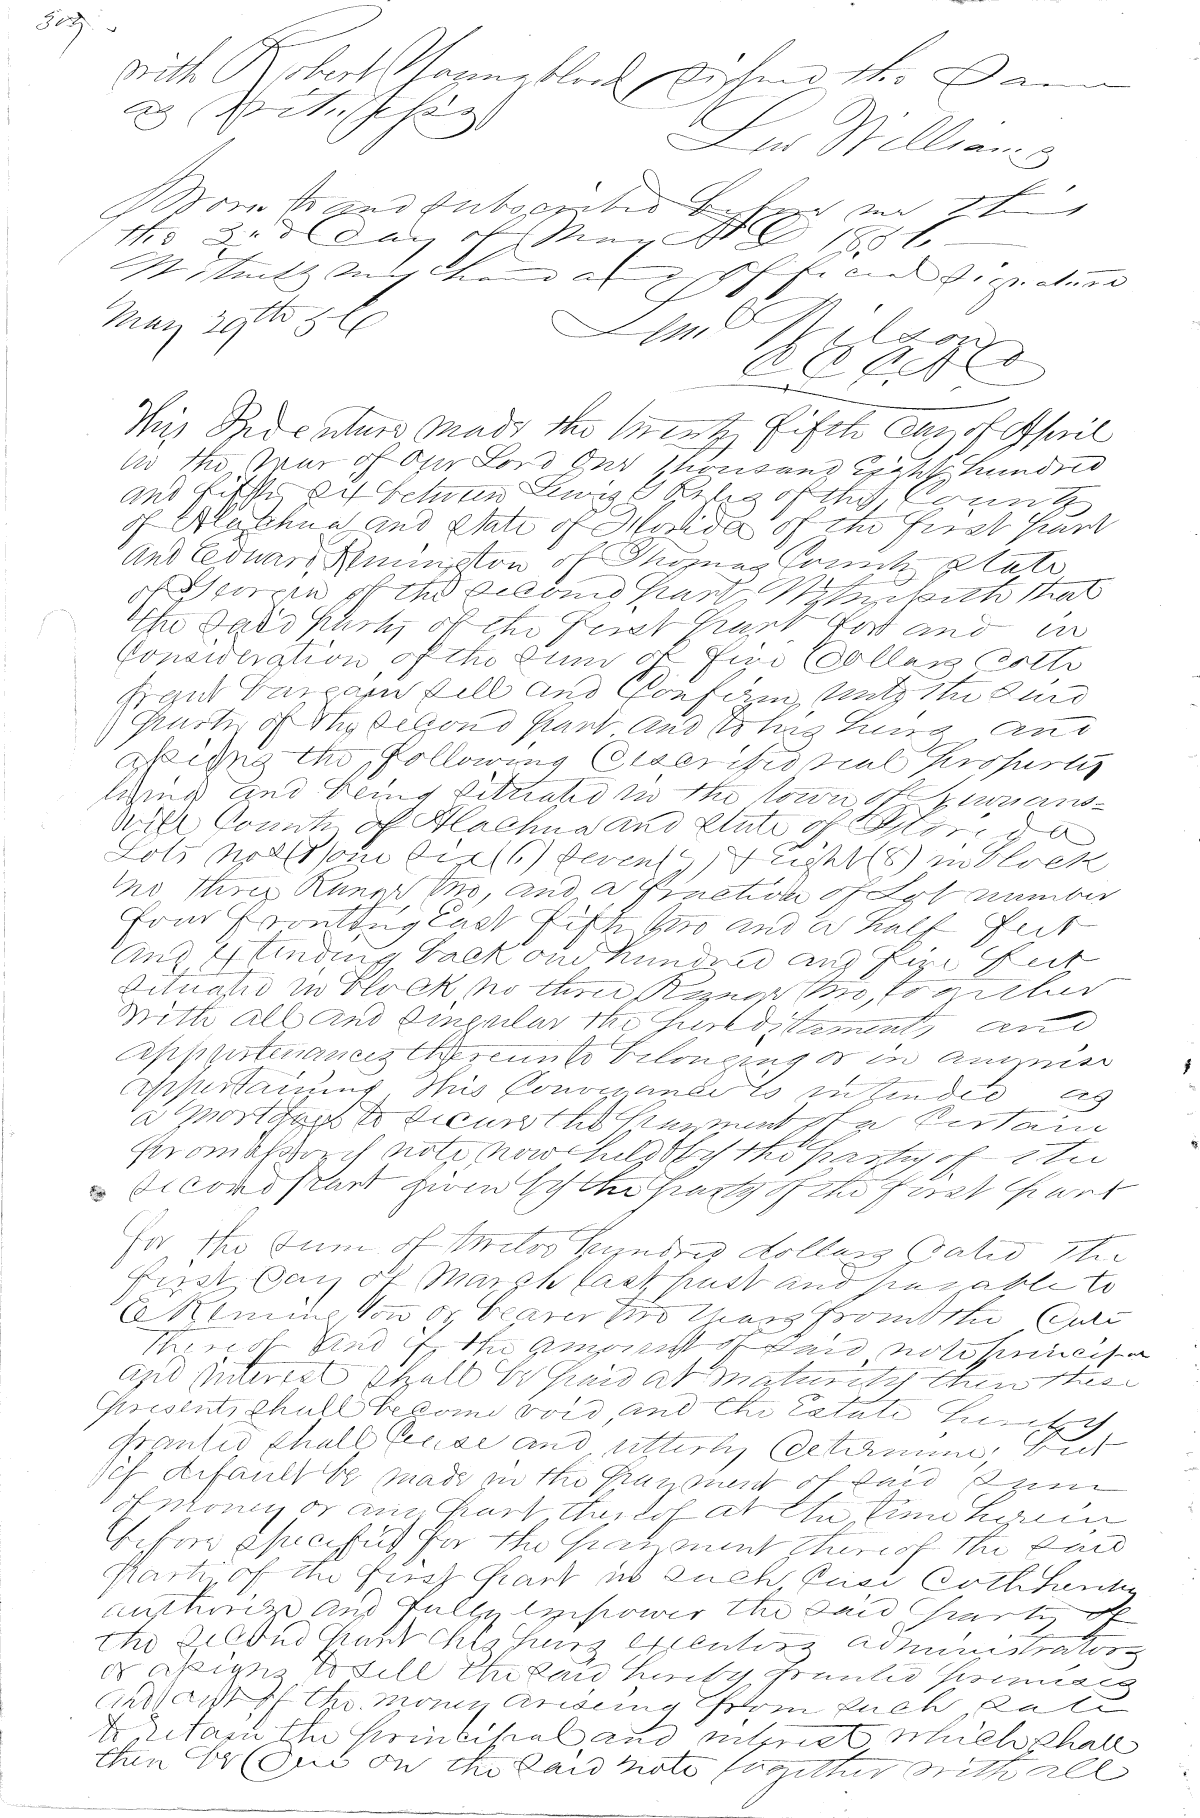 with Robert Youngblood signed the Same
as Witnesses
Lew Williams
Sworn to and subscribed before me this
the 2nd Day of May AD 1856.
Witness my hand and official signature
May 29th 56
Leml Wilson
This Indenture made the twenty fifth day of April
in the year of Our Lord One thousand Eight hundred
and fifty six between Lewis of the County
of Alachua and State of Florida of the first part
and Edward Remington of Thomas County State
of Georgia of the second part, Witnesseth that
the said party of the first part for and in
Consideration of the sum of five Dollars doth
grant bargain sell and Confirm unto the said
party of the second part and to his heirs and
assigns the following described real property
lying and being situated in the town of Newnans-
ville County of Alachua and State of Florida
Lots nos (1) one six (6) seven (7) & Eight (8) in block
no three Range two, and a fraction of Lot number
four fronting East fifty two and a half feet
and extending back one hundred and five feet
situated in block no three Range two, together
with all and singular the hereditaments and
appurtenances thereunto belonging or in anywise
appertaining, this Conveyance is intended as
a mortgage to secure the payment of a Certain
promissory note now held by the party of the
second part given by the party of the first part
for the sum of twelve hundred dollars dated the
first day of March last past and payable to
E Remington or bearer two years from the date
thereof and if the amount of said note principal
and interest shall be paid at maturity then these
presents shall become void, and the Estate hereby
granted shall Cease and utterly determine, but
if default be made in the payment of said sum
of money or any part thereof at the time herein
before specified for the payment thereof the said
party of the first part in such Case doth hereby
authorize and fully empower the said party of
the second part his heirs executors administrators
or assigns to sell the said hereby granted premises
and out of the money arising from such sale
to retain the principal and interest which shall
then be due on the said note together with all